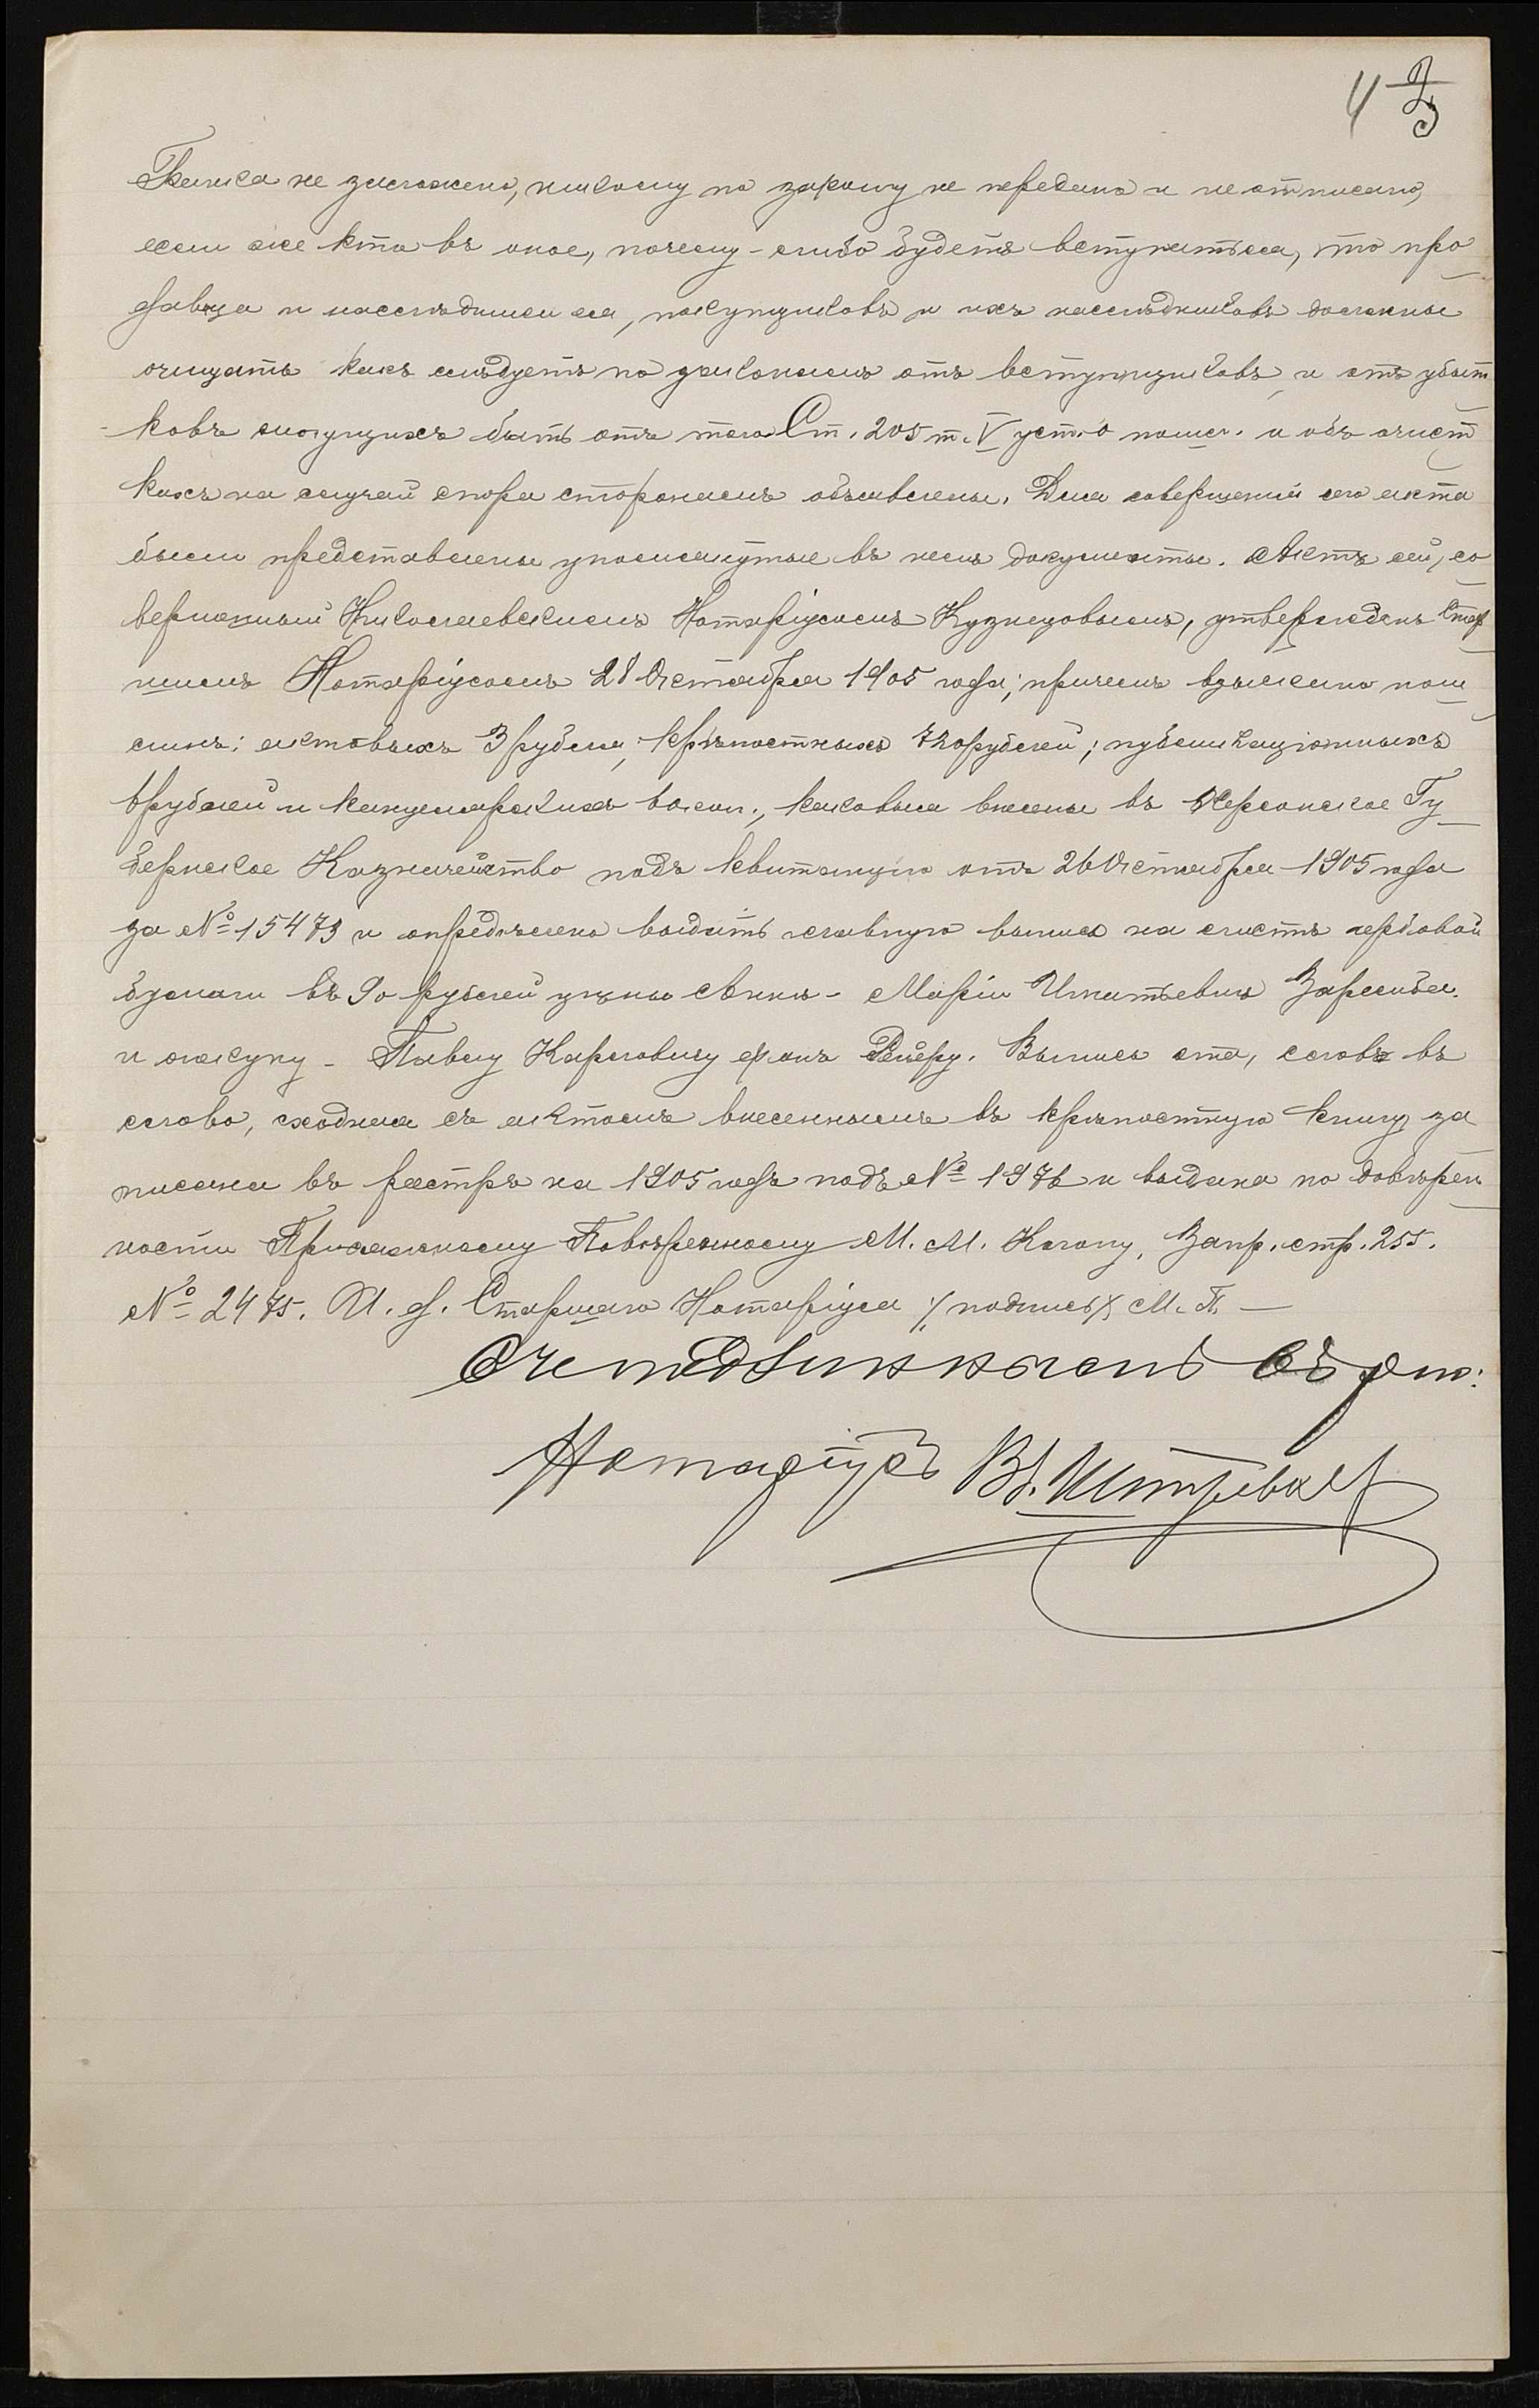 4 3
не заложено, никому по закону не передано и не отписано,
если же кто въ оное, почему-либо будетъ вступаться, то про
давца и наслѣдники ея, покупщиковъ и ихъ наслѣдниковъ должны
очищать какъ слѣдуетъ по законамъ отъ вступщиковъ и отъ убыт
ковъ могущихъ быть отъ того. Ст. 205 т. V уст. о пошл. и объ очист
кахъ на случай спора сторонамъ объявлены. Для совершенія сего акта
были представлены упомянутые въ немъ документы. Актъ сей, со
вершенный Николаевскимъ Нотаріусомъ Кузнецовымъ, утвержденъ Стар
шимъ Нотаріусомъ 28 Октября 1905 года; причемъ взыскано пош
линъ: актовыхъ 3 рубля, крѣпостныхъ 720 рублей; публикаціонныхъ
рублей и канцелярскихъ коп., каковыя внесены въ Херсонское Гу
бернское Казначейство подъ квитанцію отъ 26 Октября 1905 года
за № 15473 и опредѣлено выдать главную выпись на листѣ гербовой
бумаги въ 90 рублей цѣны Маріи Игнатьевнѣ
и опекуну - Павлу Карловичу фонъ Выпись эта, слово въ
слово, сходная съ актомъ внесеннымъ въ крѣпостную книгу за
писана въ реестрѣ на 1905 годъ подъ № 1976 и выдана по довѣрен
ности Присяжному Повѣренному М. М. Когону, Запр. стр. 255.
№ 2475. И. д. Старшаго Нотаріуса /подпись/ М. П. —
Съ подлиннымъ вѣрно:
Нотаріусъ Вл.